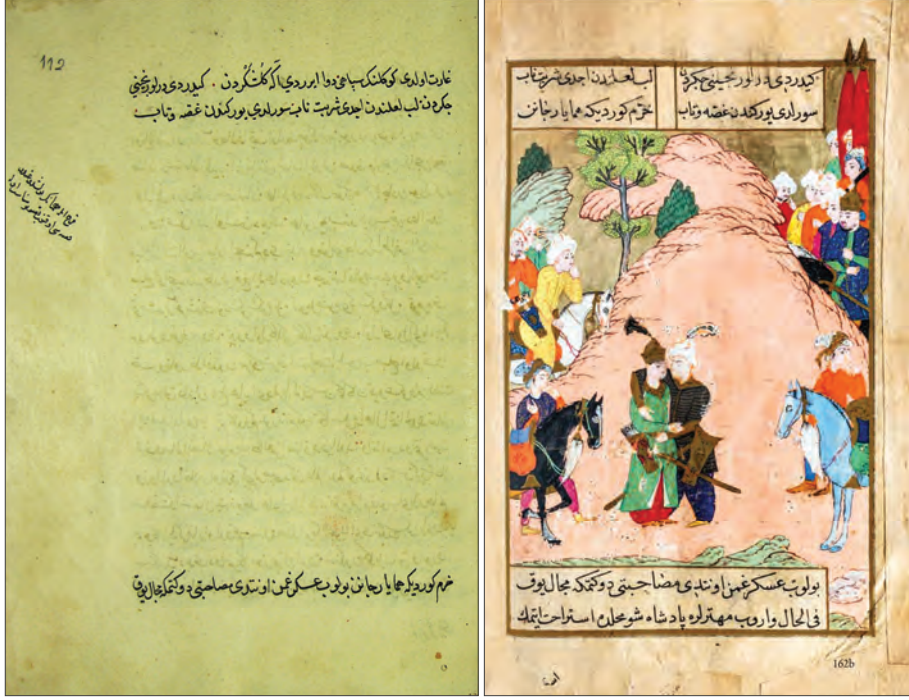 112
غارت اولدی کوکلنک سپاهی دوا ایرردی اکه کلتکردن . کیدردی دلاور نجینی
جکردن لب لعلندن اجدی شربت ناب سورلدی یورکندن غصه و تاب
خرم کوردیکه همایا رجانن بولوب عسکر غمن اونتدی مصاحبتی دوکتمکه مجال یوق
کیدردی دلاور نجینی جکردن
لب لعلندن اجدی شربت ناب
سورلدی یورکندن غصه و تاب
خرم کوردیکه همایا رجانن
بولوب عسکر غمن اونتدی مصاحبتی دوکتمکه مجال یوق
فی الحال واروب مهترلره پادشاه شو محلده استراحت ایتمك
162b